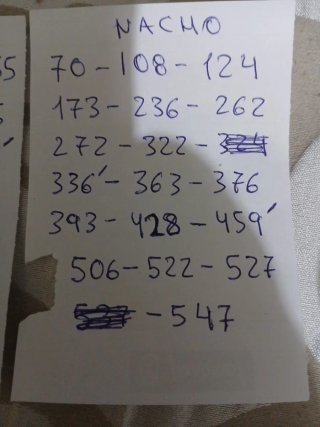 NACHO
70-108-124
173-236-262
272-322-
336'-363-376
393-428-459'
506-522-527
-547
55
5